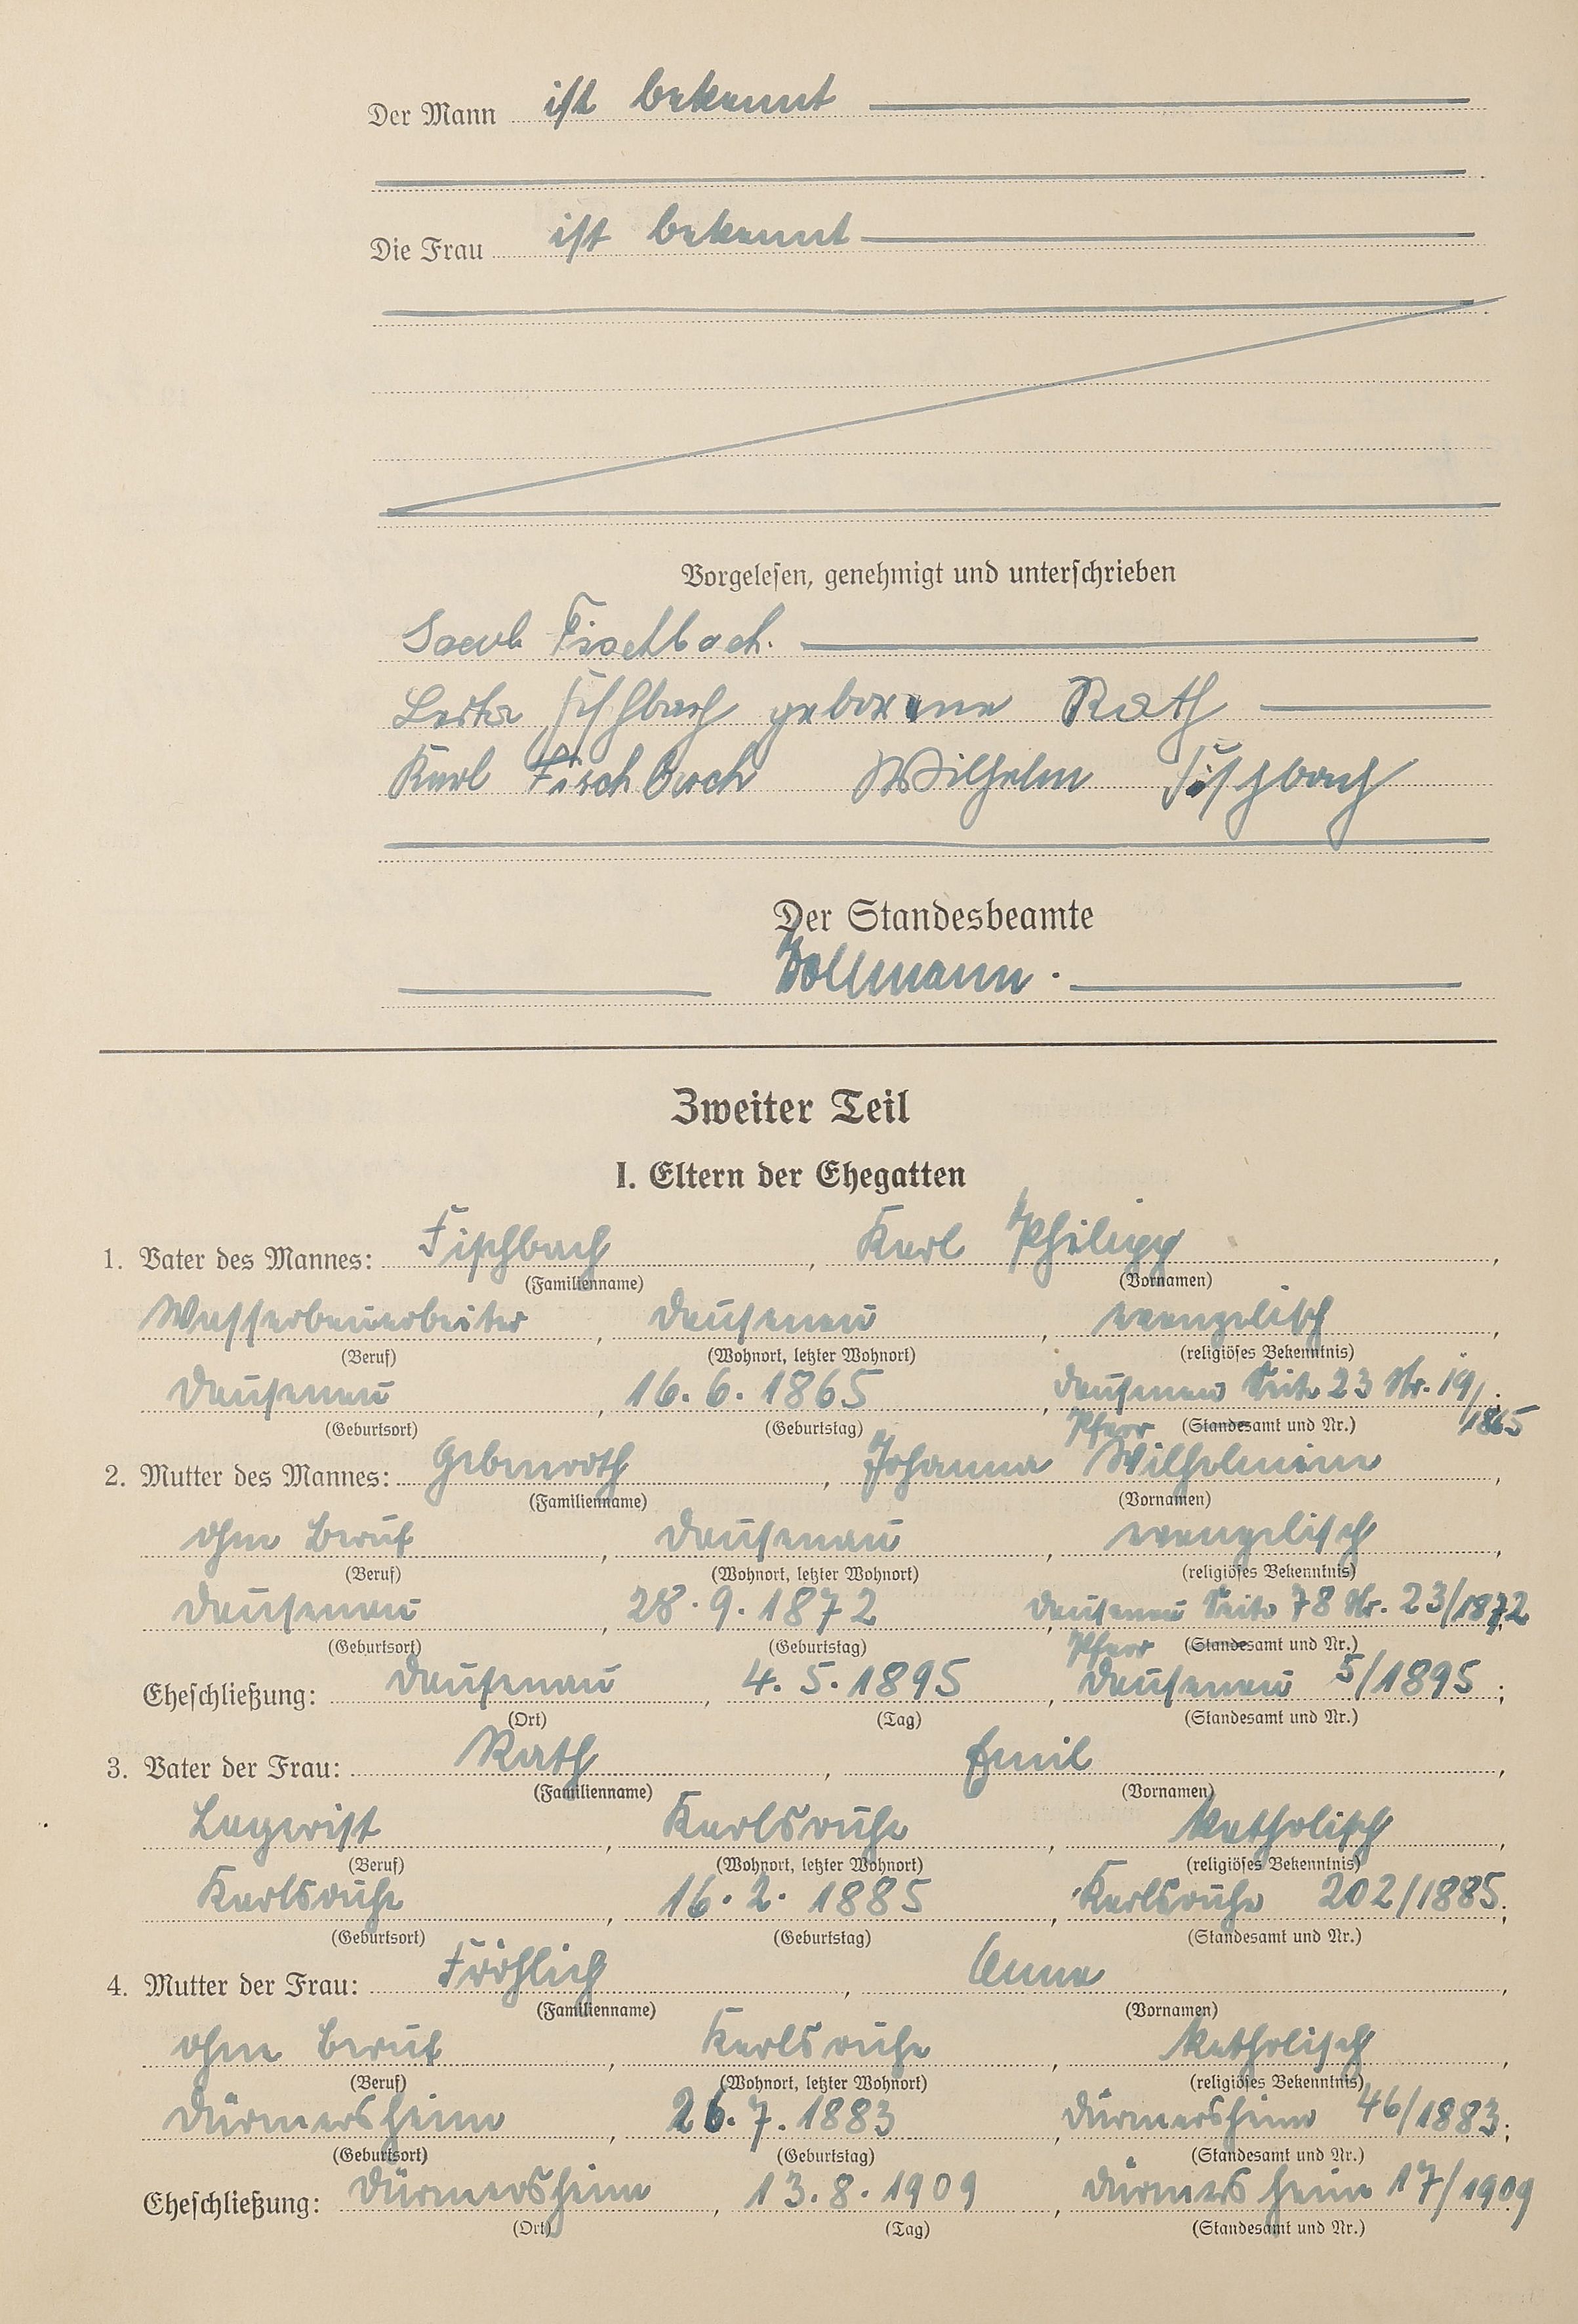 Der Mann ist bekannt
Die Frau ist bekannt
Vorgelesen, genehmigt und unterschrieben
Jacob Fischbach.
Berta Fischbach geborene Rath
Karl Fischbach Wilhelm Fischbach
Der Standesbeamte
Vollmann.
Zweiter Teil
I. Eltern der Ehegatten
1. Vater des Mannes: Fischbach, Karl Philipp,
(Familienname) (Vornamen)
Wasserbauarbeiter, Dausenau, evangelisch,
(Beruf) (Wohnort, letzter Wohnort) (religiöses Bekenntnis)
Dausenau, 16.6.1865, Dausenau Seite 23 Nr. 19/1865;
(Geburtsort) (Geburtstag) Pfarr (Standesamt und Nr.)
2. Mutter des Mannes: Gebenroth, Johanna Wilhelmine,
(Familienname) (Vornamen)
ohne Beruf, Dausenau, evangelisch,
(Beruf) (Wohnort, letzter Wohnort) (religiöses Bekenntnis)
Dausenau, 28.9.1872, Dausenau Seite 78 Nr. 23/1872;
(Geburtsort) (Geburtstag) Pfarr (Standesamt und Nr.)
Eheschließung: Dausenau, 4.5.1895, Dausenau 5/1895;
(Ort) (Tag) (Standesamt und Nr.)
3. Vater der Frau: Rath, Emil,
(Familienname) (Vornamen)
Lagerist, Karlsruhe, katholisch,
(Beruf) (Wohnort, letzter Wohnort) (religiöses Bekenntnis)
Karlsruhe, 16.2.1885, Karlsruhe 202/1885;
(Geburtsort) (Geburtstag) (Standesamt und Nr.)
4. Mutter der Frau: Fröhlich, Anna,
(Familienname) (Vornamen)
ohne Beruf, Karlsruhe, katholisch,
(Beruf) (Wohnort, letzter Wohnort) (religiöses Bekenntnis)
Dürmersheim, 26.7.1883, Dürmersheim 46/1883;
(Geburtsort) (Geburtstag) (Standesamt und Nr.)
Eheschließung: Dürmersheim, 13.8.1909, Dürmersheim 17/1909
(Ort) (Tag) (Standesamt und Nr.)